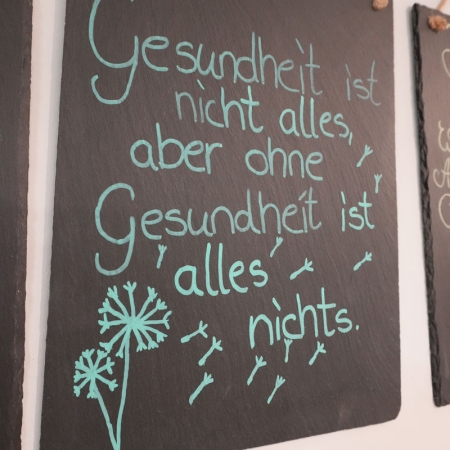 Gesundheit ist
nicht alles,
aber ohne
Gesundheit ist
alles
nichts.